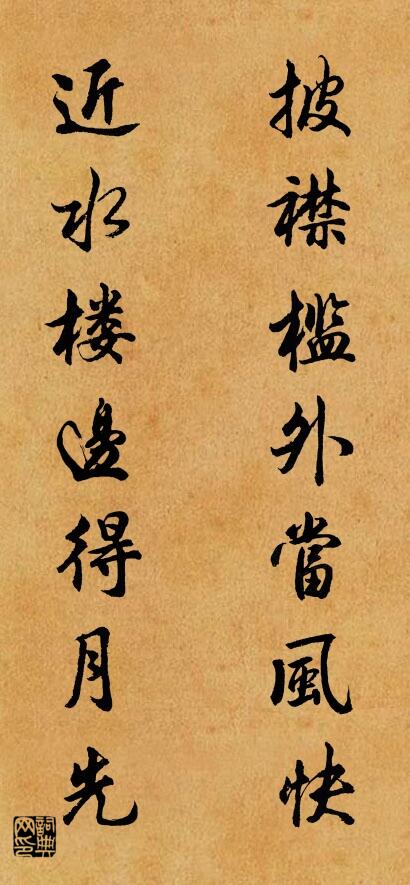 披襟檻外當風快
近水楼邊得月先
詞典网印